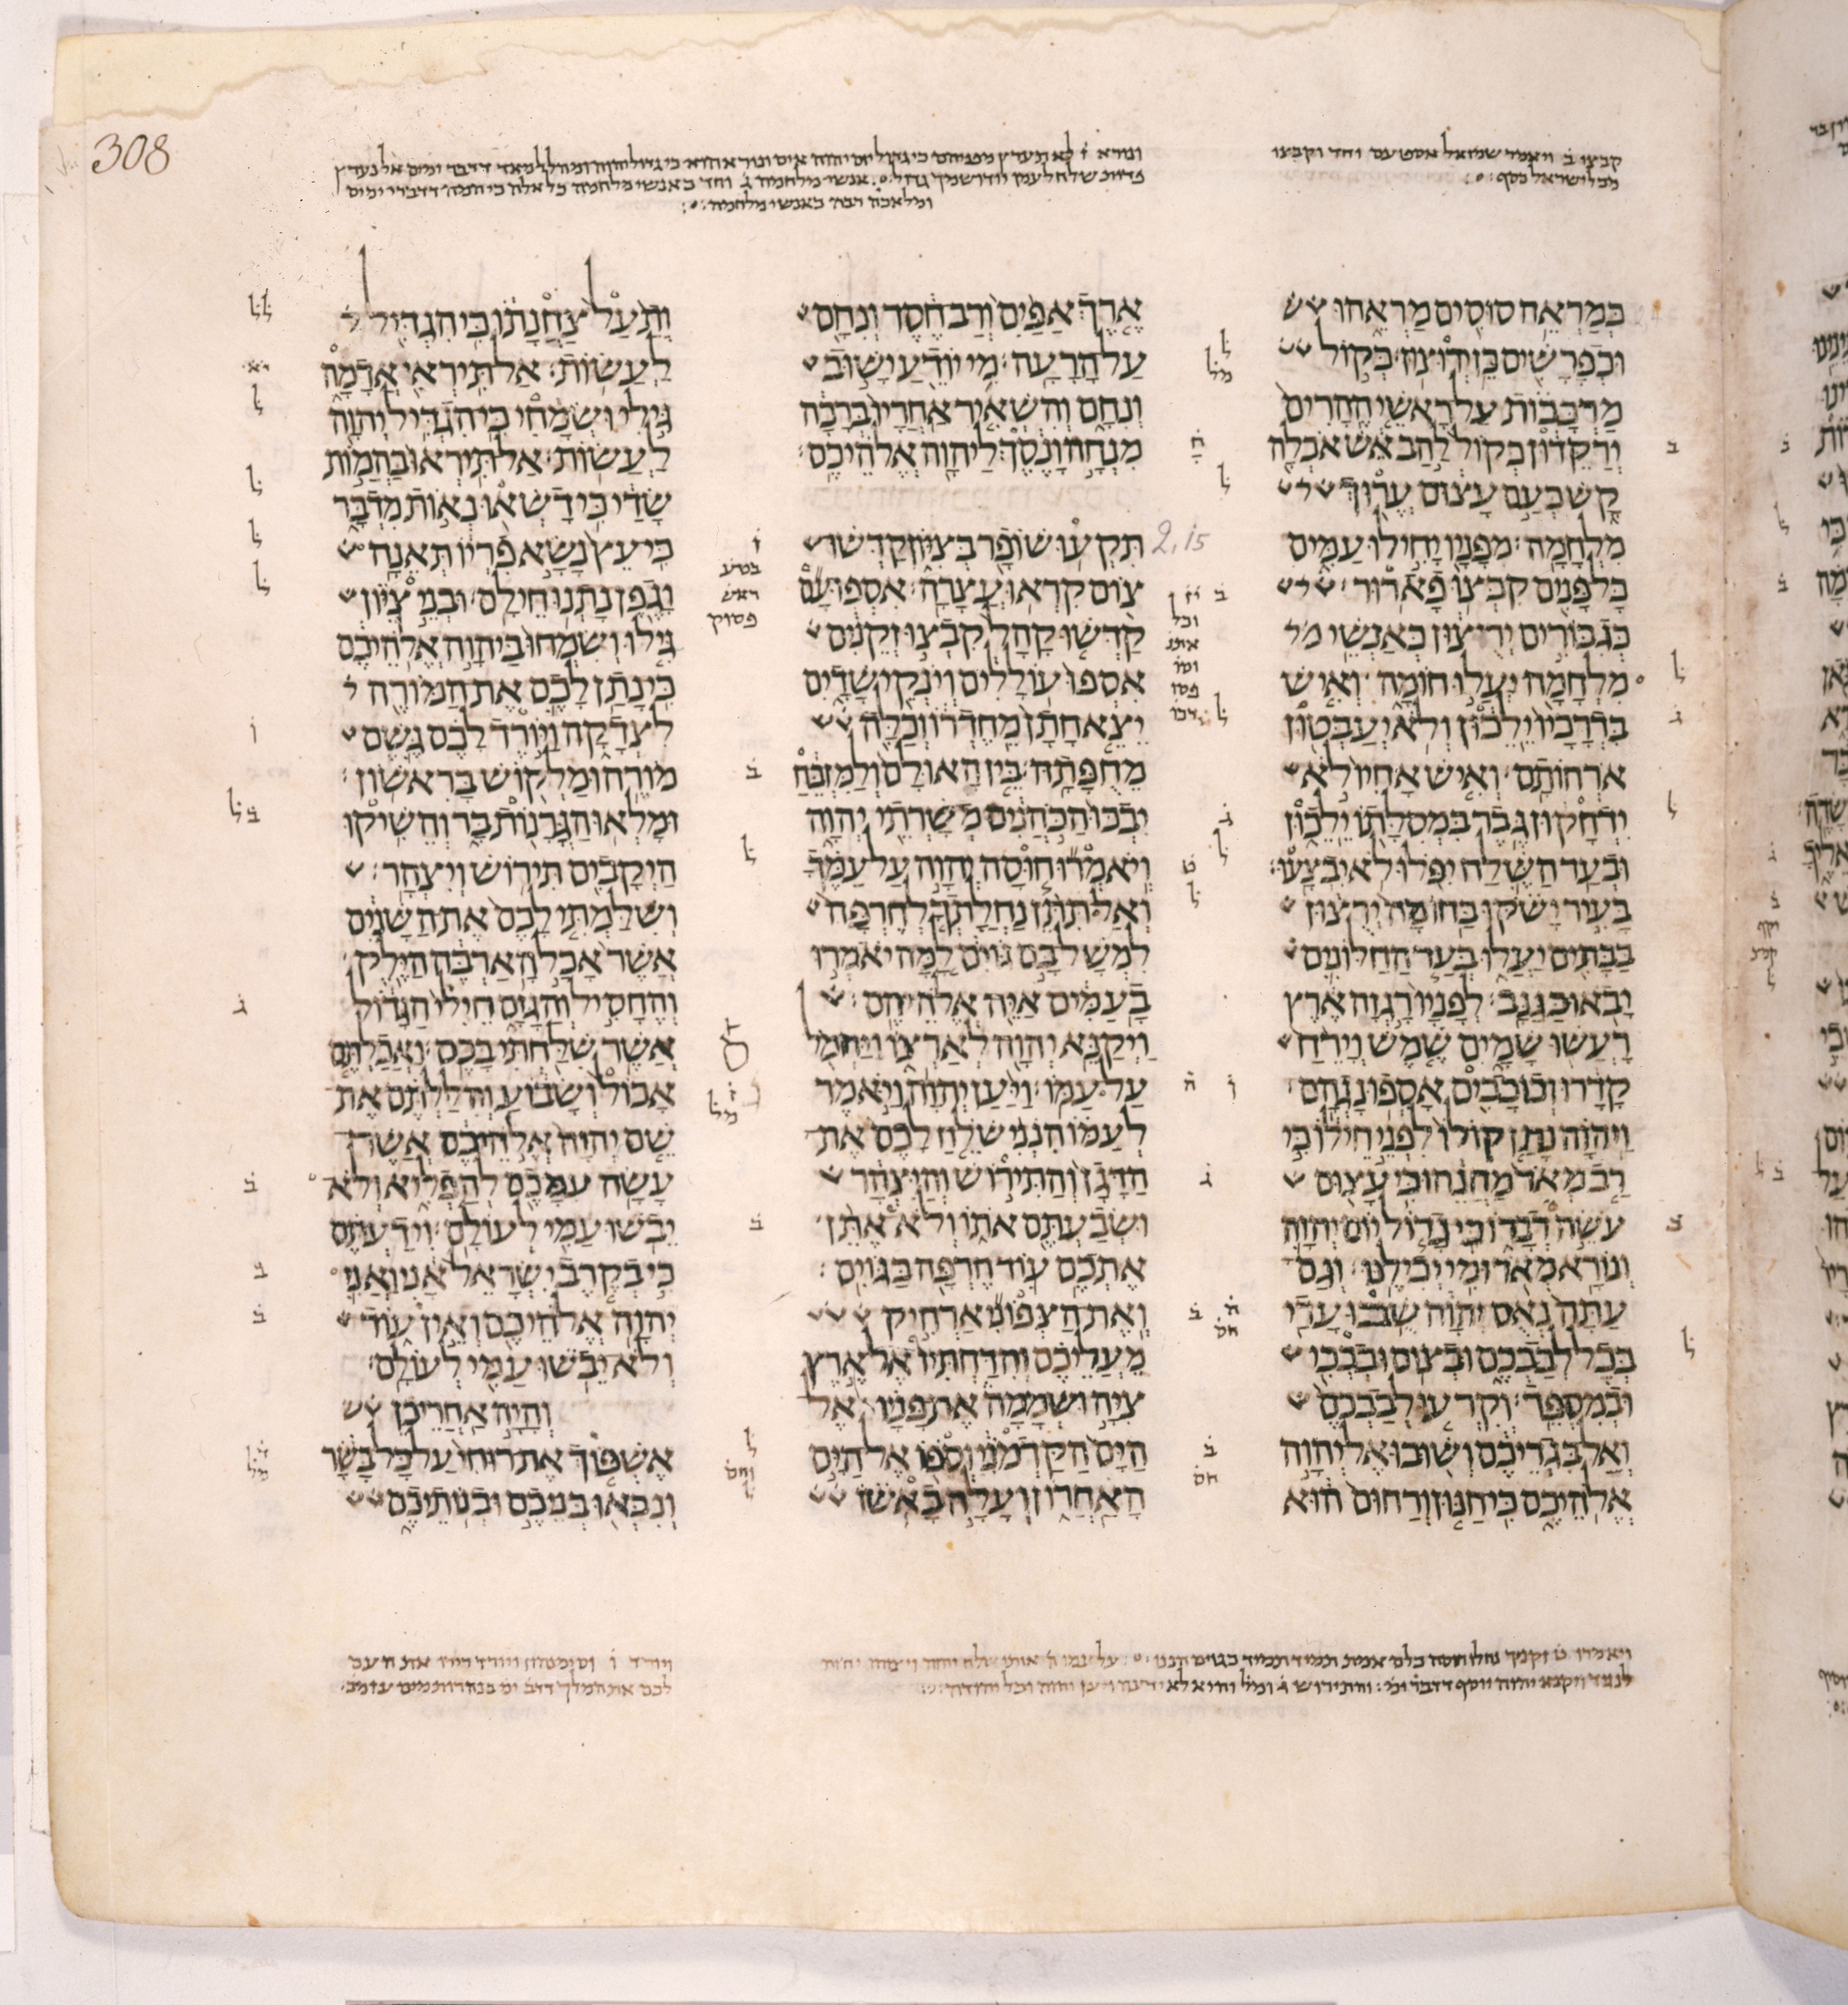 308
קבצו ב ויאמר שמואל וחד וקבצו
מכל ישראל כסף
ונורא ו לא תערץ מפניהם כי גדול יום יהוה איום ונורא הוא כי גדול יהוה ומהלל מאד דדבר ימים
פדות שלח לעמו יודו שמך גדול אנשי מלחמה ג וחד כאנשי מלחמה כל אלה דדברי ימים
ומלאכה רבה כאנשי מלחמה
כְּמַרְאֵה סוּסִים מַרְאֵהוּ
וּכְפָרָשִׁים כֵּן יְרוּצוּן׃ כְּקוֹל
מַרְכָּבוֹת עַל רָאשֵׁי הֶהָרִים
יְרַקֵּדוּן כְּקוֹל לַהַב אֵשׁ אֹכְלָה
קָשׁ כְּעַם עָצוּם עֱרוּךְ
מִלְחָמָה׃ מִפָּנָיו יָחִילוּ עַמִּים
כָּל פָּנִים קִבְּצוּ פָארוּר׃
כְּגִבּוֹרִים יְרֻצוּן כְּאַנְשֵׁי
מִלְחָמָה יַעֲלוּ חוֹמָה וְאִישׁ
בִּדְרָכָיו יֵלֵכוּן וְלֹא יְעַבְּטוּן
אֹרְחוֹתָם׃ וְאִישׁ אָחִיו לֹא
יִדְחָקוּן גֶּבֶר בִּמְסִלָּתוֹ יֵלֵכוּן
וּבְעַד הַשֶּׁלַח יִפֹּלוּ לֹא יִבְצָעוּ׃
בָּעִיר יָשֹׁקּוּ בַּחוֹמָה יְרֻצוּן
בַּבָּתִּים יַעֲלוּ בְּעַד הַחַלּוֹנִים
יָבֹאוּ כַּגַּנָּב׃ לְפָנָיו רָגְזָה אֶרֶץ
רָעֲשׁוּ שָׁמָיִם שֶׁמֶשׁ וְיָרֵחַ
קָדָרוּ וְכוֹכָבִים אָסְפוּ נָגְהָם׃
וַיהוָה נָתַן קוֹלוֹ לִפְנֵי חֵילוֹ כִּי
רַב מְאֹד מַחֲנֵהוּ כִּי עָצוּם
עֹשֵׂה דְבָרוֹ כִּי גָדוֹל יוֹם יְהוָה
וְנוֹרָא מְאֹד וּמִי יְכִילֶנּוּ׃ וְגַם
עַתָּה נְאֻם יְהוָה שֻׁבוּ עָדַי
בְּכָל לְבַבְכֶם וּבְצוֹם וּבִבְכִי
וּבְמִסְפֵּד׃ וְקִרְעוּ לְבַבְכֶם
וְאַל בִּגְדֵיכֶם וְשׁוּבוּ אֶל יְהוָה
אֱלֹהֵיכֶם כִּי חַנּוּן וְרַחוּם הוּא
אֶרֶךְ אַפַּיִם וְרַב חֶסֶד וְנִחָם
עַל הָרָעָה׃ מִי יוֹדֵעַ יָשׁוּב
וְנִחָם וְהִשְׁאִיר אַחֲרָיו בְּרָכָה
מִנְחָה וָנֶסֶךְ לַיהוָה אֱלֹהֵיכֶם׃
2,15
תִּקְעוּ שׁוֹפָר בְּצִיּוֹן קַדְּשׁוּ
צוֹם קִרְאוּ עֲצָרָה׃ אִסְפוּ עָם
קַדְּשׁוּ קָהָל קִבְצוּ זְקֵנִים
אִסְפוּ עוֹלָלִים וְיֹנְקֵי שָׁדָיִם
יֵצֵא חָתָן מֵחֶדְרוֹ וְכַלָּה
מֵחֻפָּתָהּ׃ בֵּין הָאוּלָם וְלַמִּזְבֵּחַ
יִבְכּוּ הַכֹּהֲנִים מְשָׁרְתֵי יְהוָה
וְיֹאמְרוּ חוּסָה יְהוָה עַל עַמֶּךָ
וְאַל תִּתֵּן נַחֲלָתְךָ לְחֶרְפָּה
לִמְשָׁל בָּם גּוֹיִם לָמָּה יֹאמְרוּ
בָעַמִּים אַיֵּה אֱלֹהֵיהֶם׃
וַיְקַנֵּא יְהוָה לְאַרְצוֹ וַיַּחְמֹל
עַל עַמּוֹ׃ וַיַּעַן יְהוָה וַיֹּאמֶר
לְעַמּוֹ הִנְנִי שֹׁלֵחַ לָכֶם אֶת
הַדָּגָן וְהַתִּירוֹשׁ וְהַיִּצְהָר
וּשְׂבַעְתֶּם אֹתוֹ וְלֹא אֶתֵּן
אֶתְכֶם עוֹד חֶרְפָּה בַּגּוֹיִם׃
וְאֶת הַצְּפוֹנִי אַרְחִיק
מֵעֲלֵיכֶם וְהִדַּחְתִּיו אֶל אֶרֶץ
צִיָּה וּשְׁמָמָה אֶת פָּנָיו אֶל
הַיָּם הַקַּדְמֹנִי וְסֹפוֹ אֶל הַיָּם
הָאַחֲרוֹן וְעָלָה בָאְשׁוֹ
וְתַעַל צַחֲנָתוֹ כִּי הִגְדִּיל
לַעֲשׂוֹת׃ אַל תִּירְאִי אֲדָמָה
גִּילִי וּשְׂמָחִי כִּי הִגְדִּיל יְהוָה
לַעֲשׂוֹת׃ אַל תִּירְאוּ בַּהֲמוֹת
שָׂדַי כִּי דָשְׁאוּ נְאוֹת מִדְבָּר
כִּי עֵץ נָשָׂא פִרְיוֹ תְּאֵנָה
וָגֶפֶן נָתְנוּ חֵילָם׃ וּבְנֵי צִיּוֹן
גִּילוּ וְשִׂמְחוּ בַּיהוָה אֱלֹהֵיכֶם
כִּי נָתַן לָכֶם אֶת הַמּוֹרֶה
לִצְדָקָה וַיּוֹרֶד לָכֶם גֶּשֶׁם
מוֹרֶה וּמַלְקוֹשׁ בָּרִאשׁוֹן׃
וּמָלְאוּ הַגֳּרָנוֹת בָּר וְהֵשִׁיקוּ
הַיְקָבִים תִּירוֹשׁ וְיִצְהָר׃
וְשִׁלַּמְתִּי לָכֶם אֶת הַשָּׁנִים
אֲשֶׁר אָכַל הָאַרְבֶּה הַיֶּלֶק
וְהֶחָסִיל וְהַגָּזָם חֵילִי הַגָּדוֹל
אֲשֶׁר שִׁלַּחְתִּי בָּכֶם׃ וַאֲכַלְתֶּם
אָכוֹל וְשָׂבוֹעַ וְהִלַּלְתֶּם אֶת
שֵׁם יְהוָה אֱלֹהֵיכֶם אֲשֶׁר
עָשָׂה עִמָּכֶם לְהַפְלִיא וְלֹא
יֵבֹשׁוּ עַמִּי לְעוֹלָם׃ וִידַעְתֶּם
כִּי בְקֶרֶב יִשְׂרָאֵל אָנִי וַאֲנִי
יְהוָה אֱלֹהֵיכֶם וְאֵין עוֹד
וְלֹא יֵבֹשׁוּ עַמִּי לְעוֹלָם׃
וְהָיָה אַחֲרֵי כֵן
אֶשְׁפּוֹךְ אֶת רוּחִי עַל כָּל בָּשָׂר
וְנִבְּאוּ בְּנֵיכֶם וּבְנֹתֵיכֶם